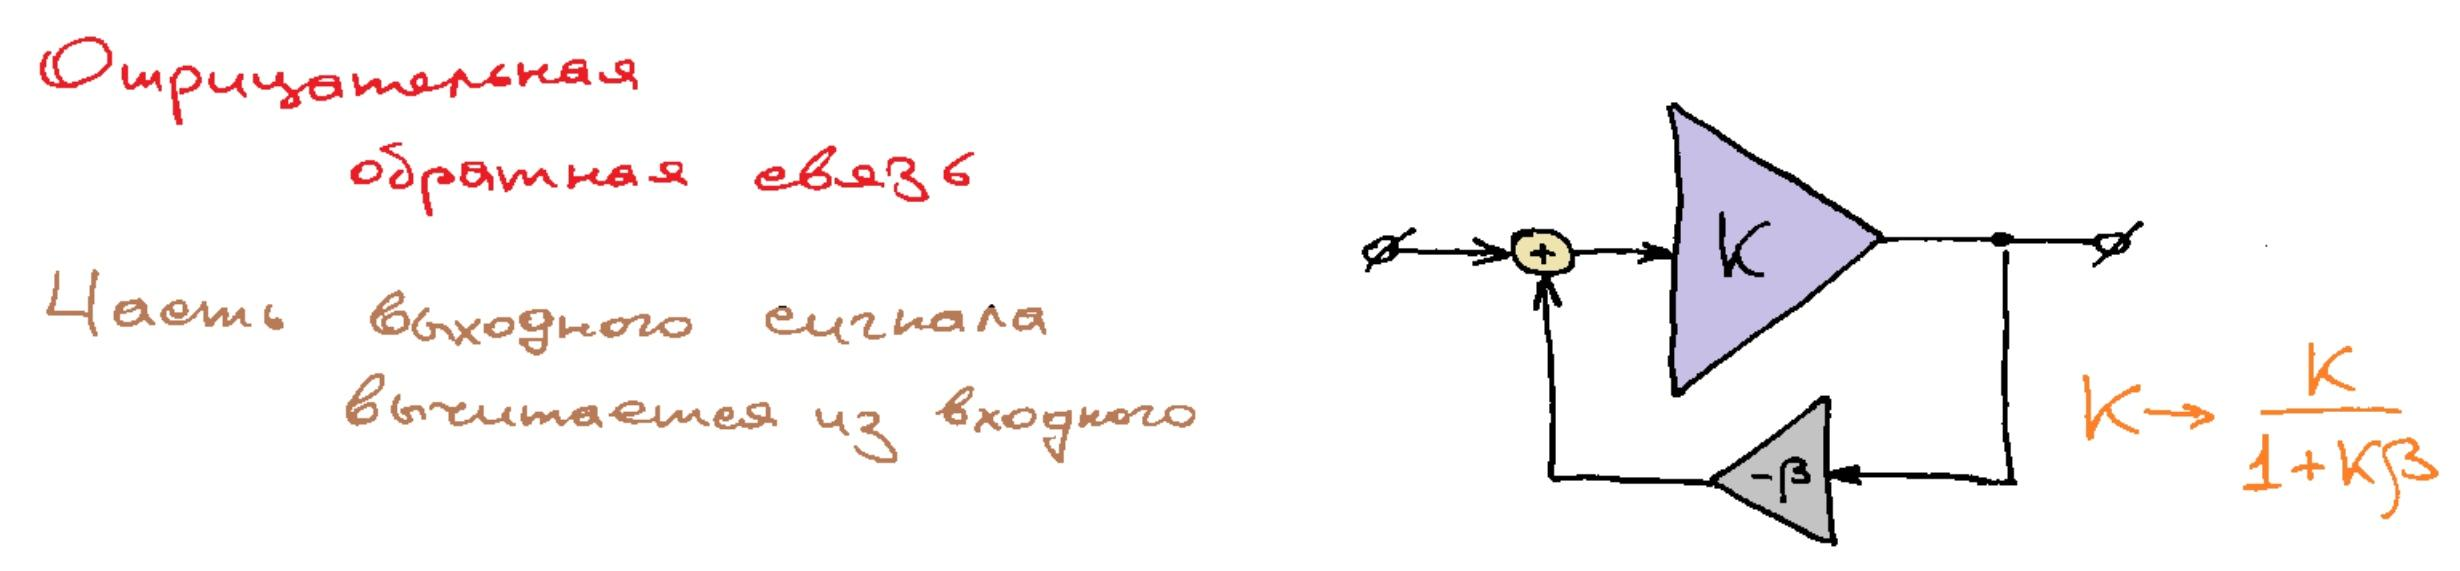 Отрицательная
обратная связь
Часть выходного сигнала
вычитается из входного
+
K
-β
K → K / 1 + Kβ